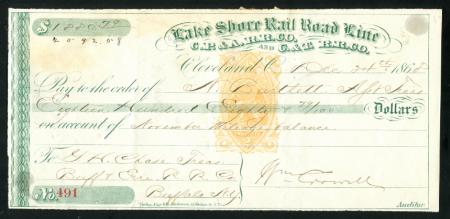 $1880.79
2092.08
Lake Shore Rail Road Line
C.P.& A. R.R.CO. AND C.& T. R.R.CO.
Cleveland O Dec 24th 1868
Pay to the order of N. Bartlett
Eighteen Hundred Eighty & 79/100 Dollars
on account of November Mileage balance
To G. H. Chase Treas
Buff & Erie R R Co
Buffalo N.Y.
Wm Crowell
No. 491
Auditor.